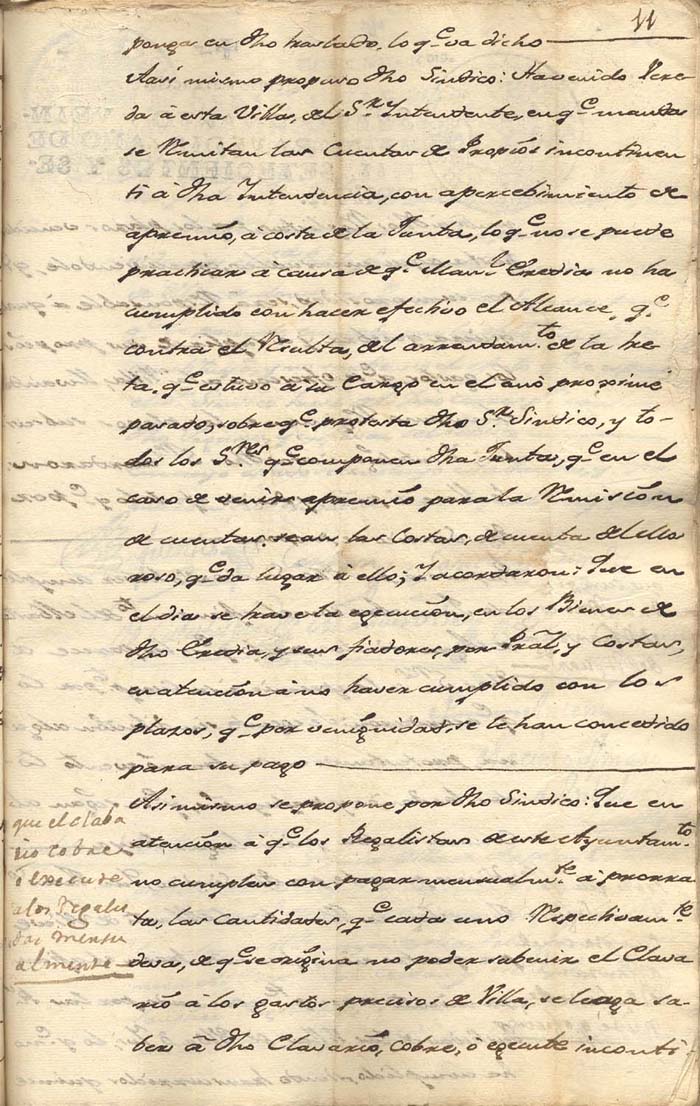 11
ponga en dho traslado, lo q.e va dicho
Assi mismo propuso dho Sindico: Havenido Vere-
da à esta Villa, del S.r Yntendente, en q.e manda
se Remitan las Cuentas de Propios incontinen
ti à dha Yntendencia, con apercebimiento de
apremio, à costa de la Junta, lo q.e no se puede
practicar à causa de q.e Man.l Eredia no ha
cumplido con hacer efectivo el Alcance, q.e
contra el Resulta, del arrendam.to de la
ta, q.e estuvo à su Cargo en el año proximè
pasado, sobre q.e protesta dho S.r Sindico, y to-
dos los S.res q.e componen dha Junta, q.e en el
caso de venir apremio para la Remision
de cuentas, sean las Costas, de cuenta del Mo
roso, q.e da lugar à ello; Y acordaron: Que en
el dia se trave la egecucion, en los Bienes de
dho Eredia, y sus fiadores, por Pral, y Costas,
en atencion à no haver cumplido con los
plazos, q.e por venignidad, se le han concedido
para su pago
Asimismo se propone por dho Sindico: Que en
atencion à q.e los Regalistas de este Ayuntam.to
no cumplen con pagar mensualm.te à prorra
ta, las cantidades, q.e cada uno Repectivam.te
deva, de q.e se origina no poder subenir el Clava
rio à los gastos precisos de Villa, se le aga sa-
ber à dho Clavario, cobre, ò egecute inconti-
que el claba
rio cobre
ò execute
a los regalis
tas mensu
almente